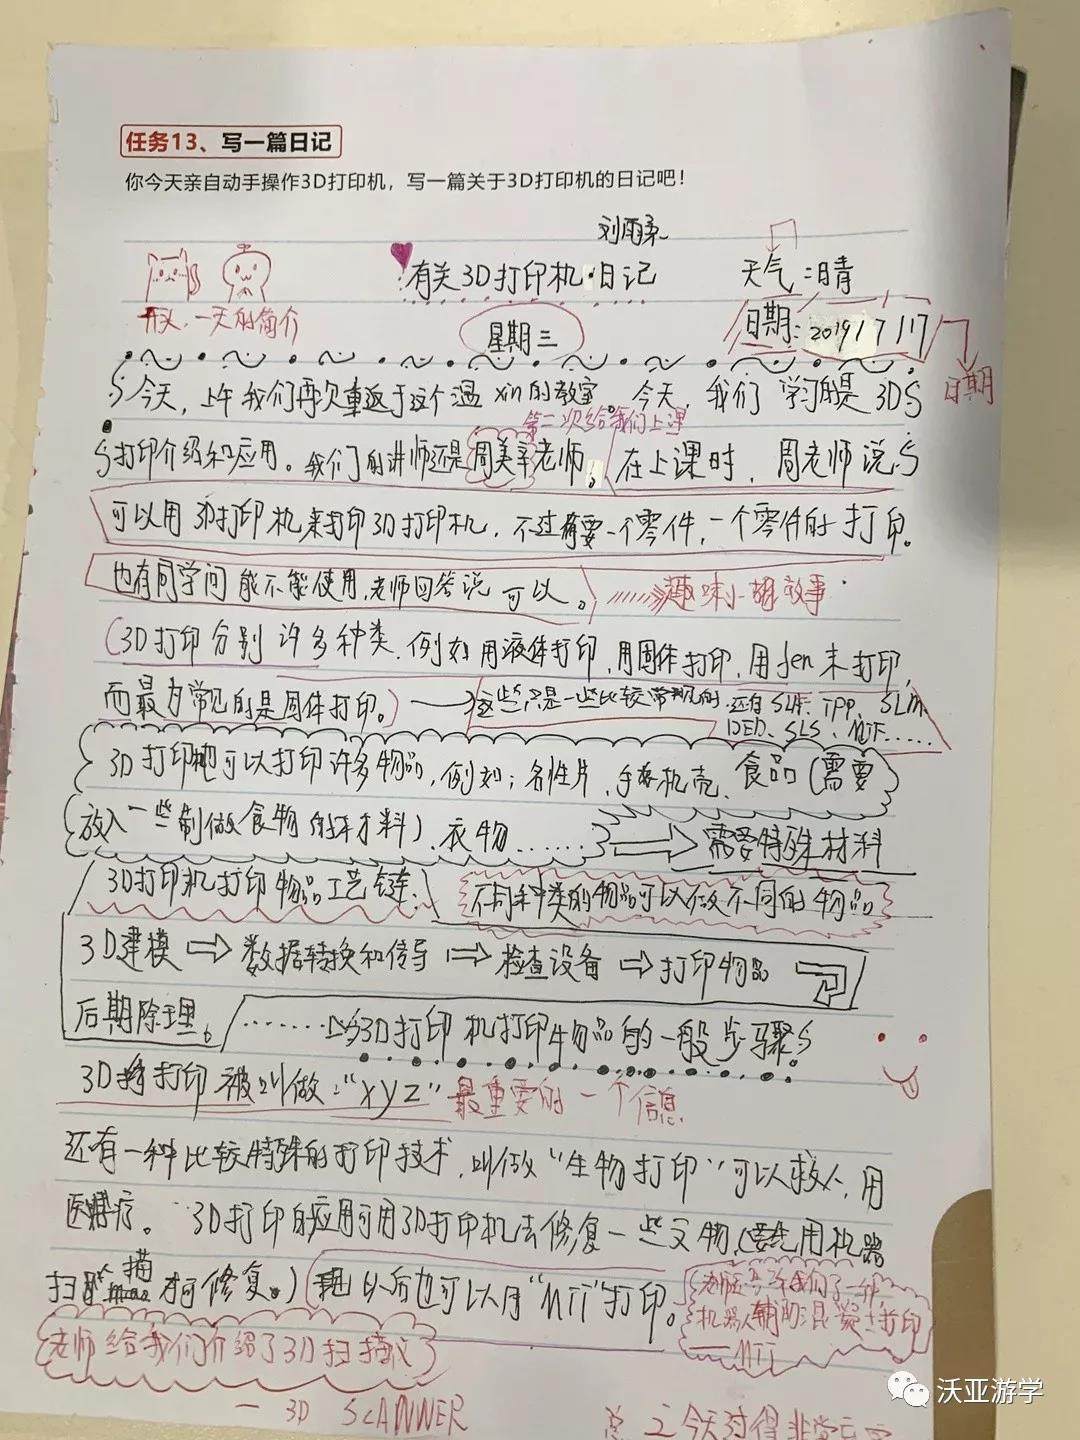 任务13、写一篇日记
你今天亲自动手操作3D打印机，写一篇关于3D打印机的日记吧！
刘雨柔
有关3D打印机·日记
天气：晴
开头，一天的简介
星期三
日期：2019/7/17
日期
今天，上午我们再次重返于这个温xin的教室。今天，我们学习的是3D
第二次给我们上课
打印介绍和应用。我们的讲师还是周美辛老师。在上课时，周老师说
可以用3D打印机来打印3D打印机，不过需要一个零件，一个零件的打印。
也有同学问能不能使用，老师回答说可以。
趣味小故事
(3D打印分别许多种类，例如用液体打印，用固体打印，用fen末打印，
而最为常见的是固体打印。)
这些只是一些比较常规的，还有SLA、TPP、SLM、
DED、SLS、MJF……
3D打印也可以打印许多物品，例如：名性片、手机壳、食品(需要
放入一些制做食物的材料)、衣物……
需要特殊材料
3D打印机打印物品工艺链：
不同种类的物品可以做不同的物品
3D建模⇨数据转换和传导⇨检查设备⇨打印物品
后期除理。
3D打印机打印物品的一般步骤
3D打印被叫做："xyz"
最重要的一个信息
还有一种比较特殊的打印技术，叫做"生物打印"可以救人，用
医疗。3D打印的应用可用3D打印机去修复一些文物，(要先用机器
扫描才可修复。)以后也可以用"MTI"打印。
机器人辅助混凝土打印
——MTI
老师给我们介绍了3D扫描仪
— 3D SCANNER
今天过得非常
沃亚游学